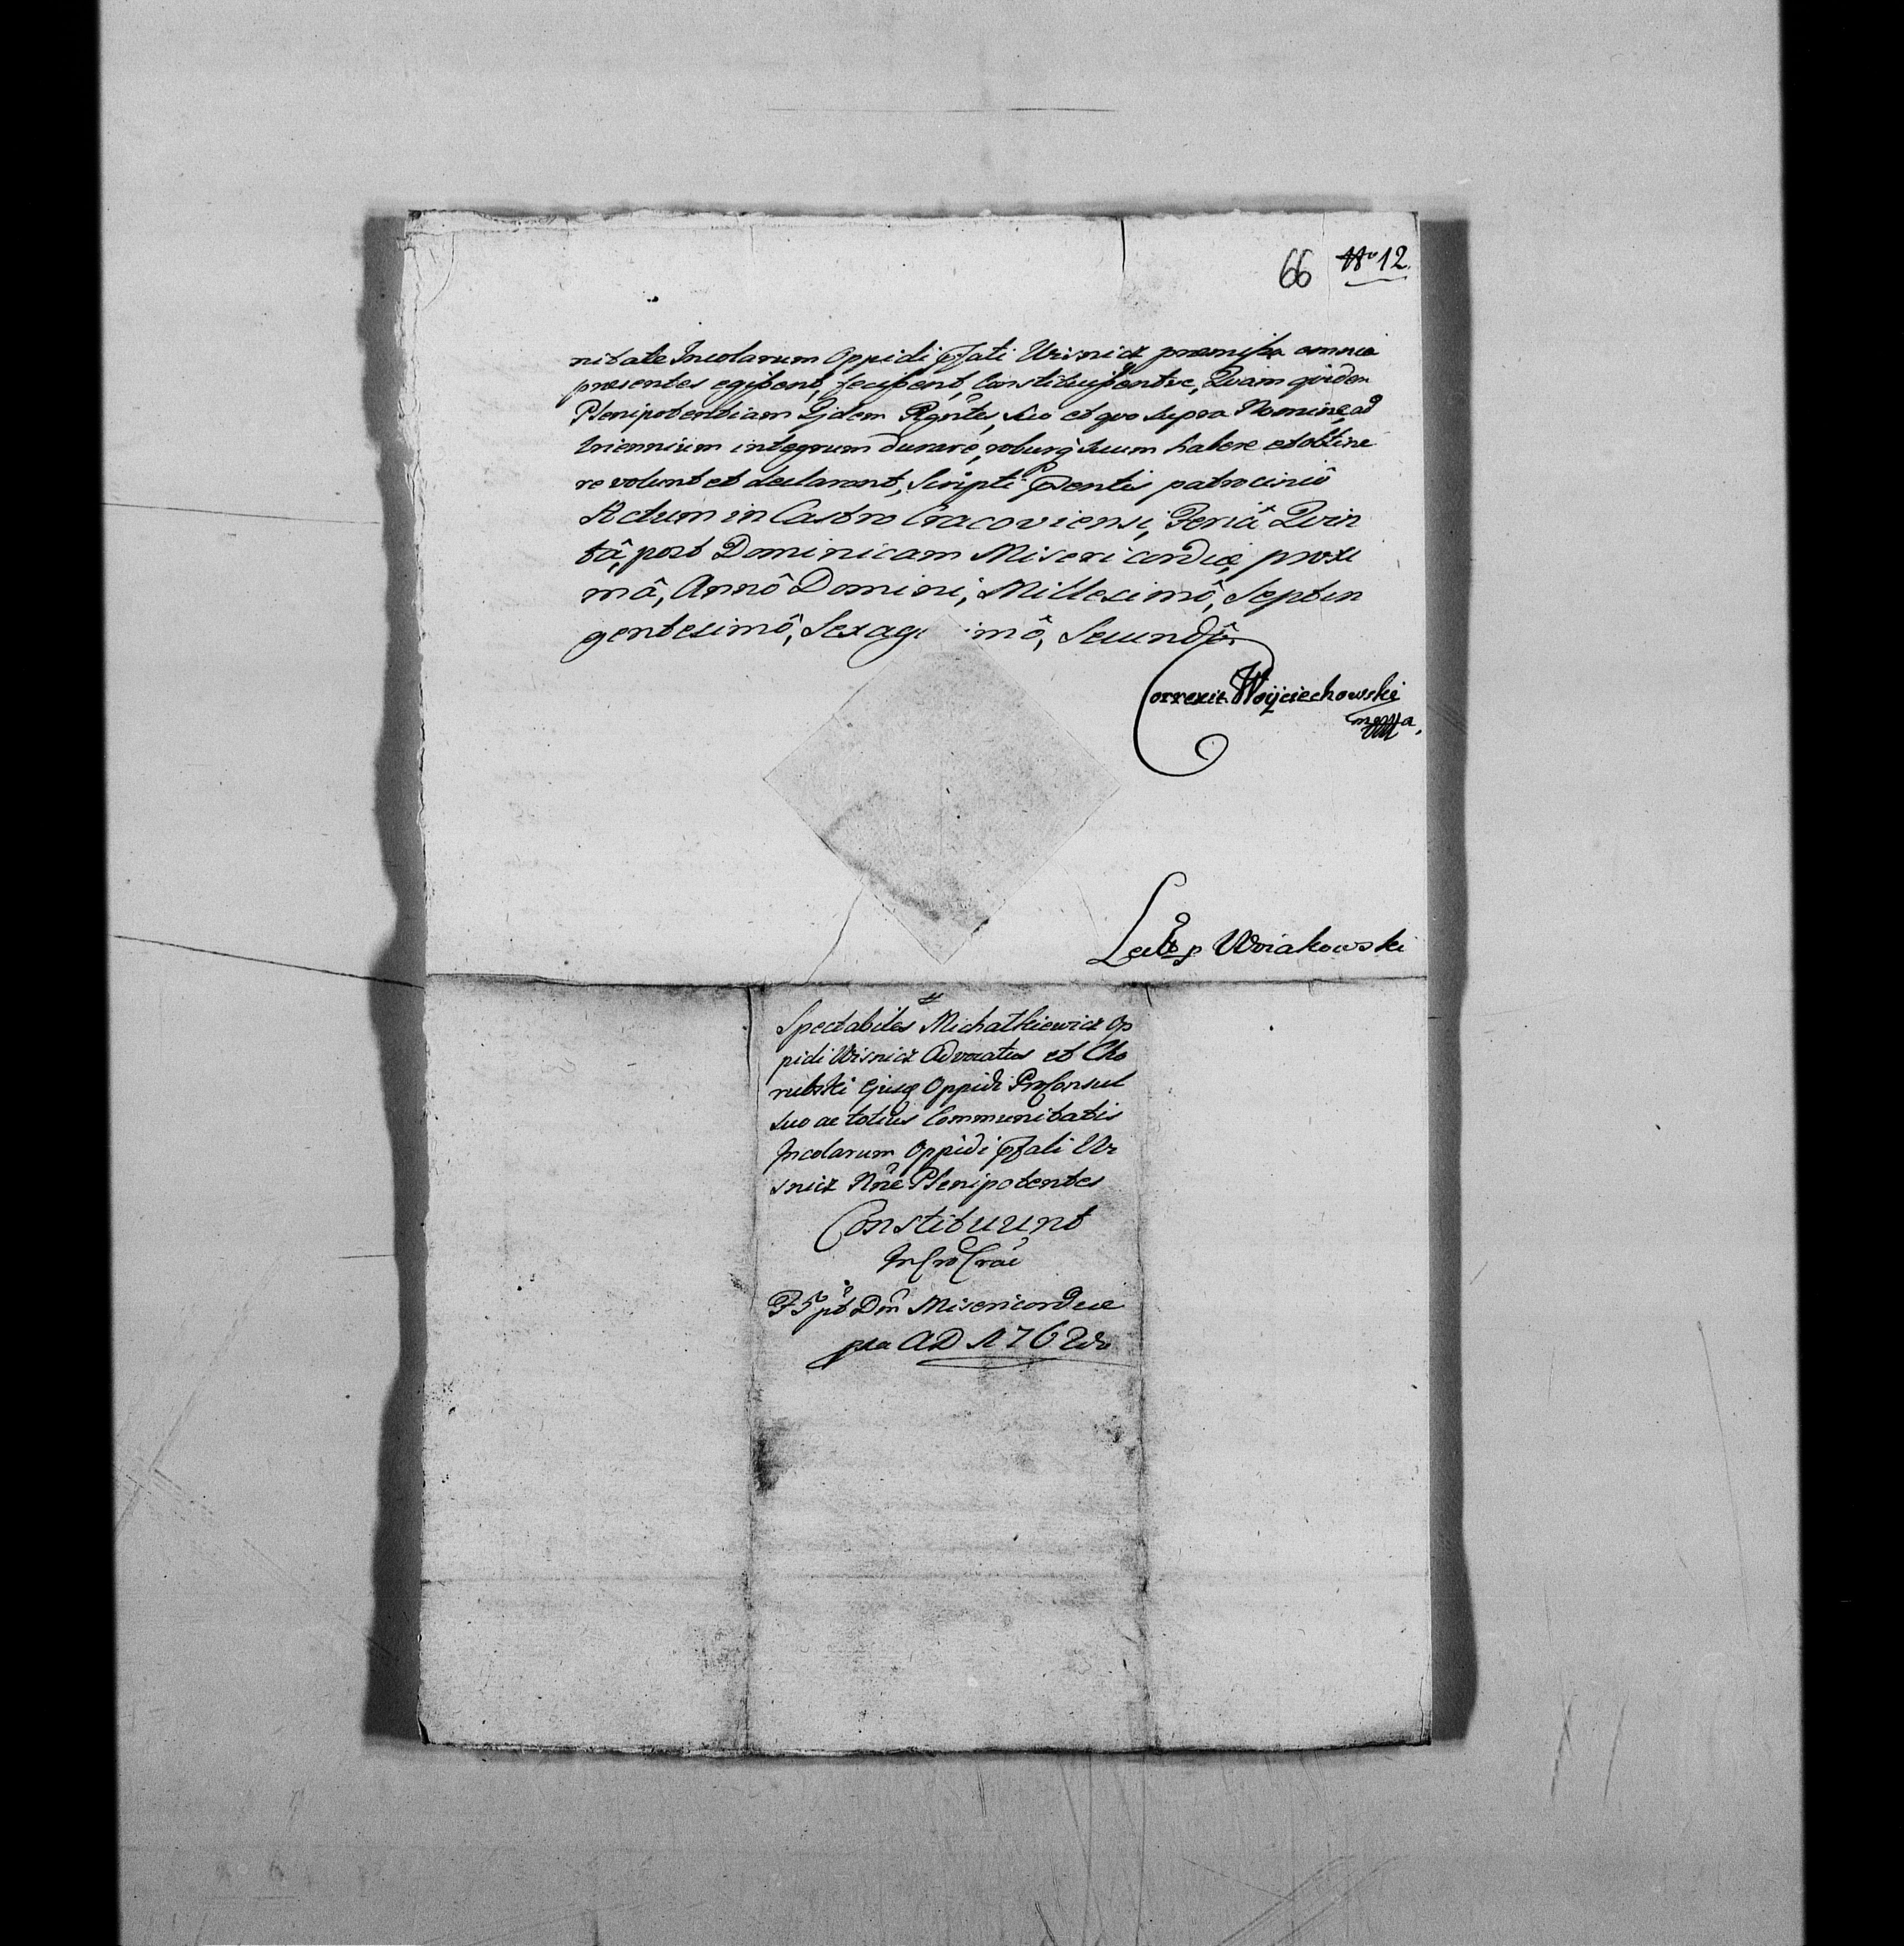 66 No 12.
nitate Incolarum Oppidi pfati Wisnicz præmissa omnia
præsentes egissent, fecissent, Constituissentve, Quam quidem
Plenipotentiam Ijdem Rgntes, suo et quo supra Nomine, ad
triennium integrum durare, roburq suum habere et obtine
re volunt et declarant, Scripti pntis patrociniô
Actum in Castro Cracoviensi, Feriâ Quin
tâ, post Dominicam Misericordiæ, proxi
mâ, Annô Domini, Millesimô, Septin
gentesimô, Sexag imô, Secundô.
Correxit Woyciechowski
mppa,
Lect p Wviakowski
Spectabiles Michatkiewicz Op
pidi Wisnicz Advocatus et Cho
rubski Ejusq Oppidi ProConsul
suo ac totius Communitatis
Incolarum Oppidi pfati Wi
snicz Nne Plenipotentes
Constituunt
In Cro Crac
F 5 pt Dm Misericordiæ
pxa AD 1762do